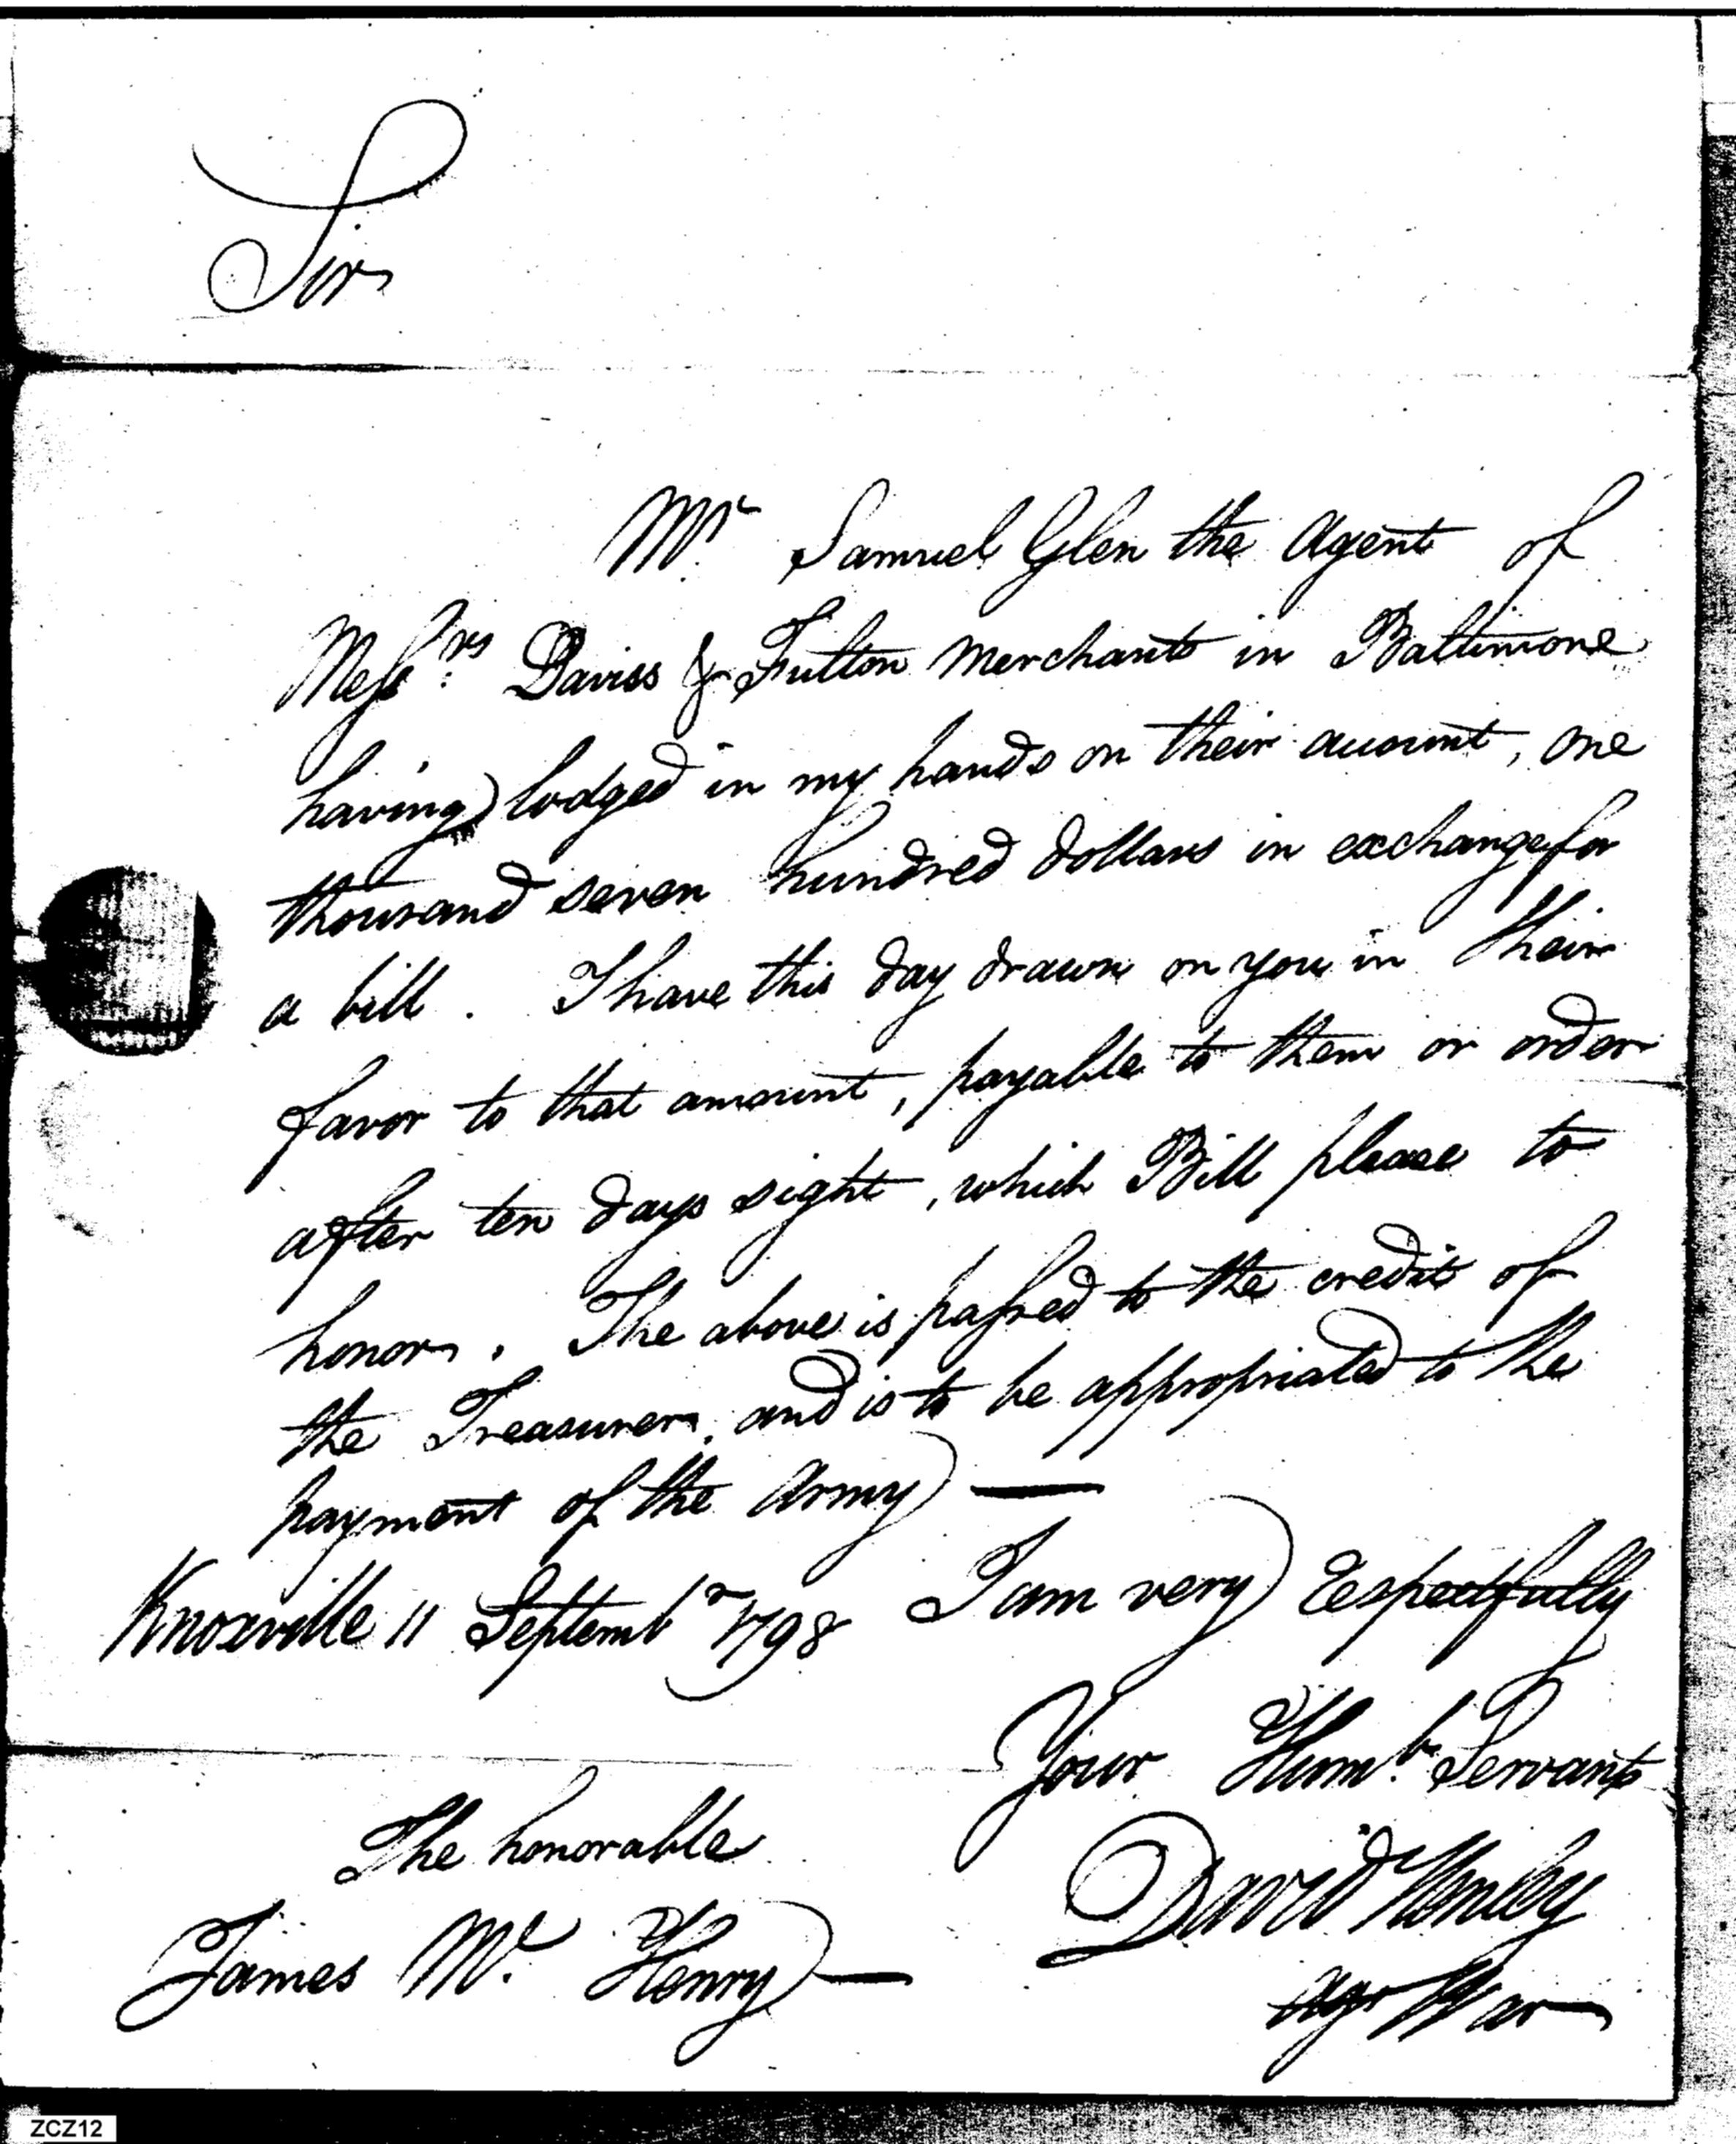 Sir
Mr. Samuel Glen the Agent of
Messrs. Daviss & Fulton Merchants in Baltimore
having lodged in my hands on their account, one
thousand seven hundred dollars in exchange for
a bill. I have this day drawn on you in their
favor to that amount, payable to them or order
after ten days sight, which Bill please to
honor. The above is passed to the credit of
the Treasurer, and is to be appropriated to the
payment of the Army —
Knoxville 11 Septembr 1798 I am very Respectfully
Your Humb. Servant
The honorable
David Henley
James Mc. Henry —
Agt War
ZCZ12